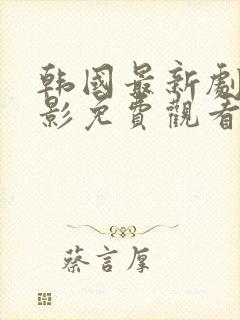 韩國最新劇
影免費觀看
蔡言厚